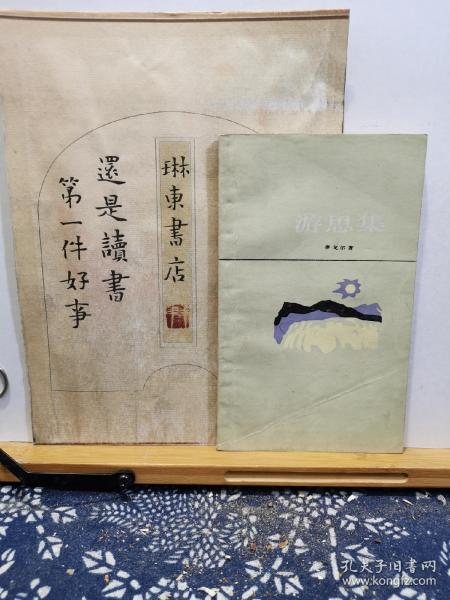 琳東書店
還是讀書
第一件好事
游思集
泰戈尔著
孔夫子旧书网
www.kongfz.com